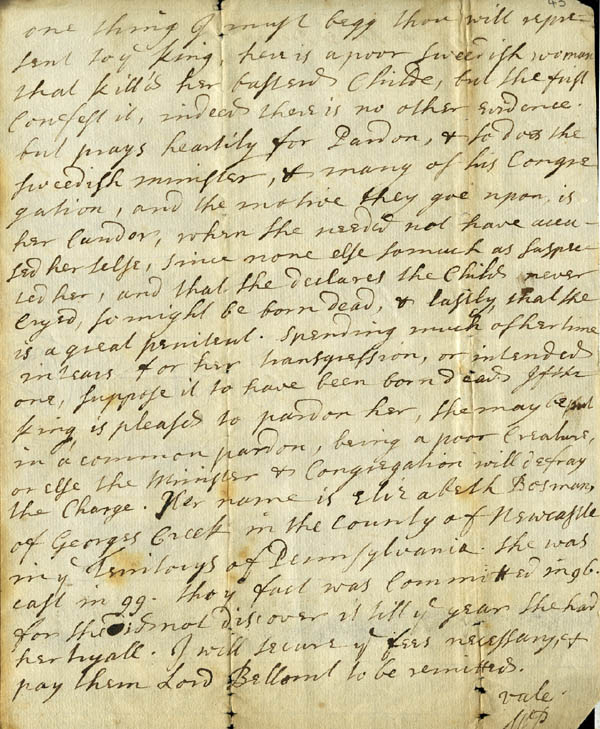 43
one thing I must begg thou will repre-
sent to yᵉ King, here is a poor Sweedish woman
that kill'd her basterd Childe, but she first
Confest it, indeed there is no other evidence.
but prays heartily for Pardon, & so does the
sweedish minister, & many of his Congre
gation, and the motive they goe upon, is
her Candor, when she needed not have accu-
sed her selfe, since none else so much as suspec-
ted her, and that she declares the Child never
Cryed, so might be born dead, & lastly, that she
is a great penitent. spending much of her time
in tears for her transgression, or intended
one, suppose it to have been born dead. If the
King is pleased to pardon her, she may be put
in a common pardon, being a poor Creature,
or else the Minister & Congregation will defray
the Charge. Her name is Elizabeth Bosman,
of Georges Creek in the County of Newcastle
in yᵉ Territorys of Pennsylvania. she was
cast in 99. thoy fact was Committed in 96.
for she did not discover it till yᵉ year she had
her tryall. I will secure yᵉ fees necessary, &
pay them Lord Bellomt to be remitted.
vale.
WP